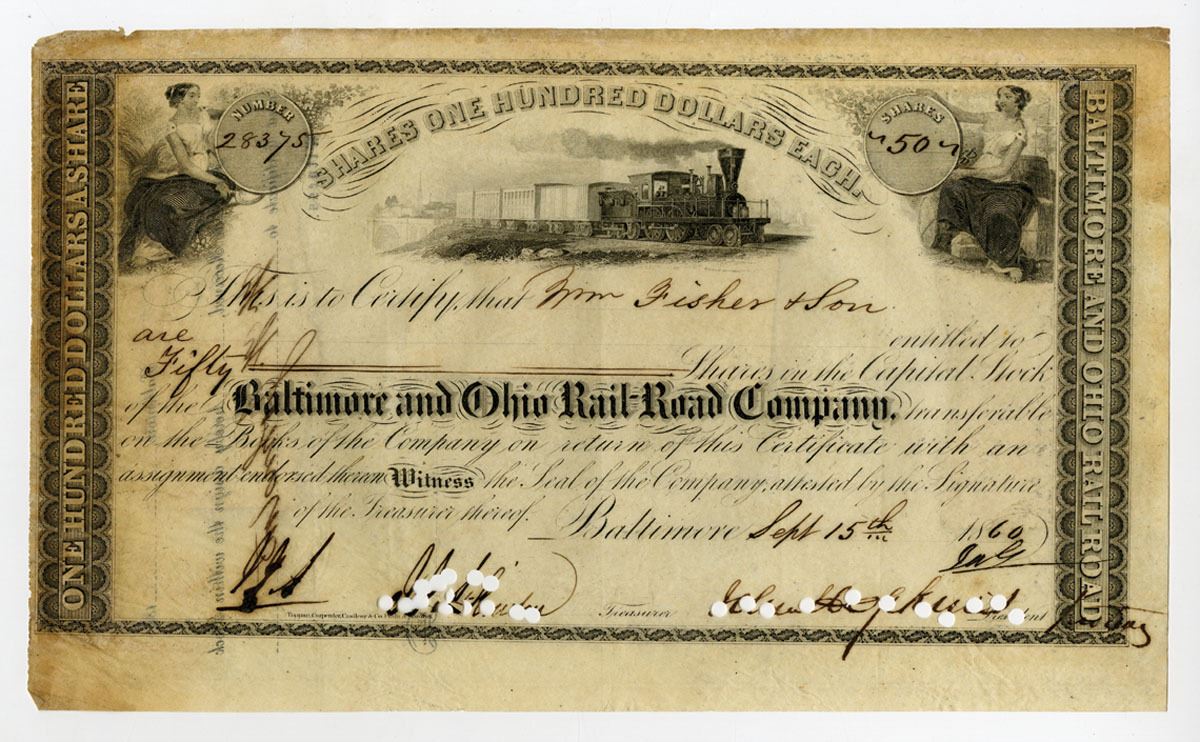 ONE HUNDRED DOLLARS A SHARE
NUMBER
28375
SHARES ONE HUNDRED DOLLARS EACH.
SHARES
50
This is to Certify, that Wm Fisher & Son
are entitled to
Fifty Shares in the Capital Stock
of the Baltimore and Ohio Rail-Road Company, transferable
on the Books of the Company on return of this Certificate with an
assignment endorsed thereon Witness the Seal of the Company, attested by the Signature
of the Treasurer thereof. Baltimore Sept 15th 1860
Treasurer
President
BALTIMORE AND OHIO RAIL ROAD